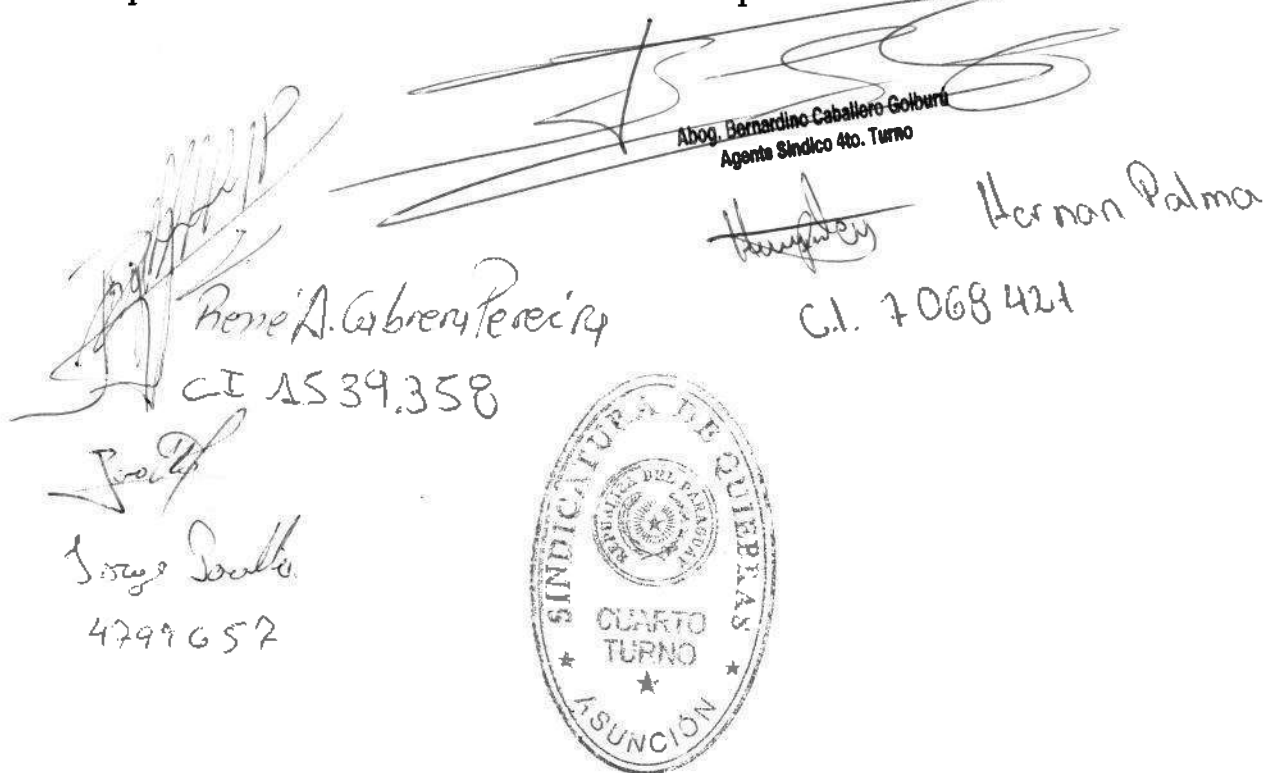 Abog. Bernardino Caballero Golburú
Agente Síndico 4to. Turno
Hernan Palma
C.I. 7068421
René A. Cabrera Pereira
CI 1539.358
Jorge
SINDICATURA DE QUIEBRAS
REPUBLICA DEL PARAGUAY
CUARTO
TURNO
ASUNCIÓN